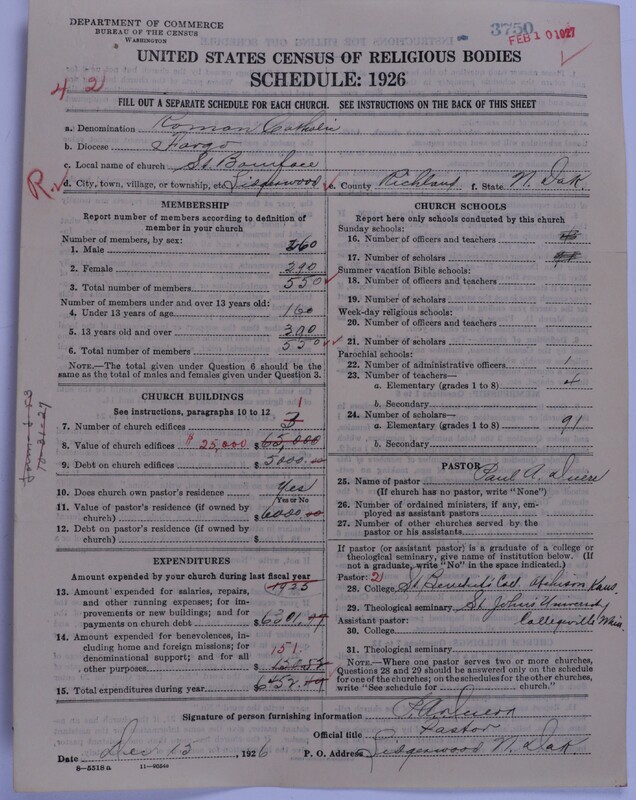 DEPARTMENT OF COMMERCE
BUREAU OF THE CENSUS
WASHINGTON
3750
FEB 10 1927
UNITED STATES CENSUS OF RELIGIOUS BODIES
SCHEDULE: 1926
4 2
FILL OUT A SEPARATE SCHEDULE FOR EACH CHURCH. SEE INSTRUCTIONS ON THE BACK OF THIS SHEET
a. Denomination Roman Catholic
b. Diocese Fargo
c. Local name of church St. Boniface
R.
d. City, town, village, or township, etc. Lidgerwood e. County Richland f. State N. Dak
MEMBERSHIP
Report number of members according to definition of
member in your church
Number of members, by sex:
1. Male 260
2. Female 290
3. Total number of members 550
Number of members under and over 13 years old:
4. Under 13 years of age 160
5. 13 years old and over 390
6. Total number of members 550
NOTE.—The total given under Question 6 should be the
same as the total of males and females given under Question 3.
CHURCH BUILDINGS
See instructions, paragraphs 10 to 12
1
7. Number of church edifices 3
8. Value of church edifices $ 25,000 $ 65,000
9. Debt on church edifices $ 5000.00
10. Does church own pastor's residence Yes
Yes or No
11. Value of pastor's residence (if owned by
church) $ 6000.00
12. Debt on pastor's residence (if owned by
church) $
EXPENDITURES
Amount expended by your church during last fiscal year
1925
13. Amount expended for salaries, repairs,
and other running expenses; for im-
provements or new buildings; and for
payments on church debt $ 6301.
14. Amount expended for benevolences, in-
cluding home and foreign missions; for
denominational support; and for all
other purposes 151.
15. Total expenditures during year $ 6452.
CHURCH SCHOOLS
Report here only schools conducted by this church
Sunday schools:
16. Number of officers and teachers
17. Number of scholars
Summer vacation Bible schools:
18. Number of officers and teachers
19. Number of scholars
Week-day religious schools:
20. Number of officers and teachers
21. Number of scholars
Parochial schools:
22. Number of administrative officers 1
23. Number of teachers—
a. Elementary (grades 1 to 8) 4
b. Secondary
24. Number of scholars—
a. Elementary (grades 1 to 8) 91
b. Secondary
PASTOR
25. Name of pastor Paul A.
(If church has no pastor, write "None")
26. Number of ordained ministers, if any, em-
ployed as assistant pastors
27. Number of other churches served by the
pastor or his assistants
If pastor (or assistant pastor) is a graduate of a college or
theological seminary, give name of institution below. (If
not a graduate, write "No" in the space indicated.)
Pastor: 2
28. College St Benedicts Coll. Atchison Kans.
29. Theological seminary St Johns University
Collegeville Minn.
Assistant pastor:
30. College
31. Theological seminary
NOTE.—Where one pastor serves two or more churches,
Questions 28 and 29 should be answered only on the schedule
for one of the churches; on the schedules for the other churches,
write "See schedule for church."
Signature of person furnishing information
Official title Pastor
Date Dec 15, 1926 P. O. Address Lidgerwood N. Dak.
8-5518 a 11-9554